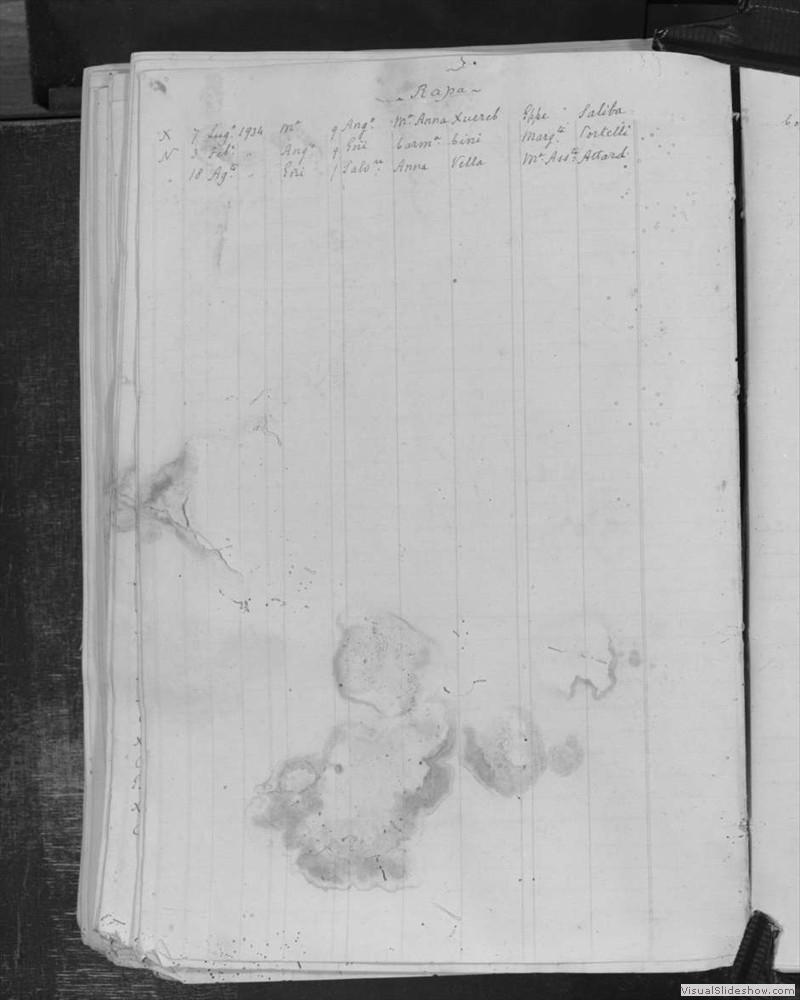 Rapa
X 7 Lug.o 1934 M.a q Ang.o M.a Anna Xuereb Gppe Saliba
N 3 Feb.o " Ang.o q Gni Carm.a Cini Marg.ta Portelli
18 Ag.to " Gni Salv.re Anna Vella M.a Ass.ta Attard
VisualSlideshow.com